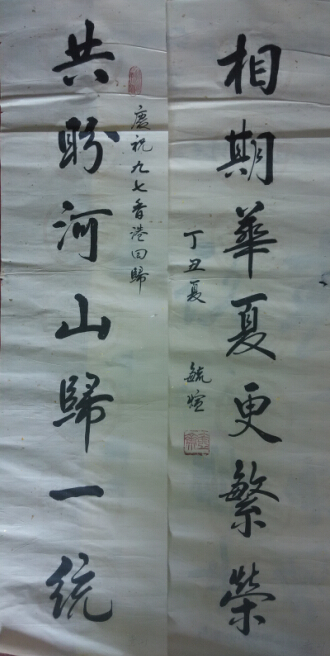 慶祝九七香港回歸
共盼河山歸一統
相期華夏更繁榮
丁丑夏 毓煊